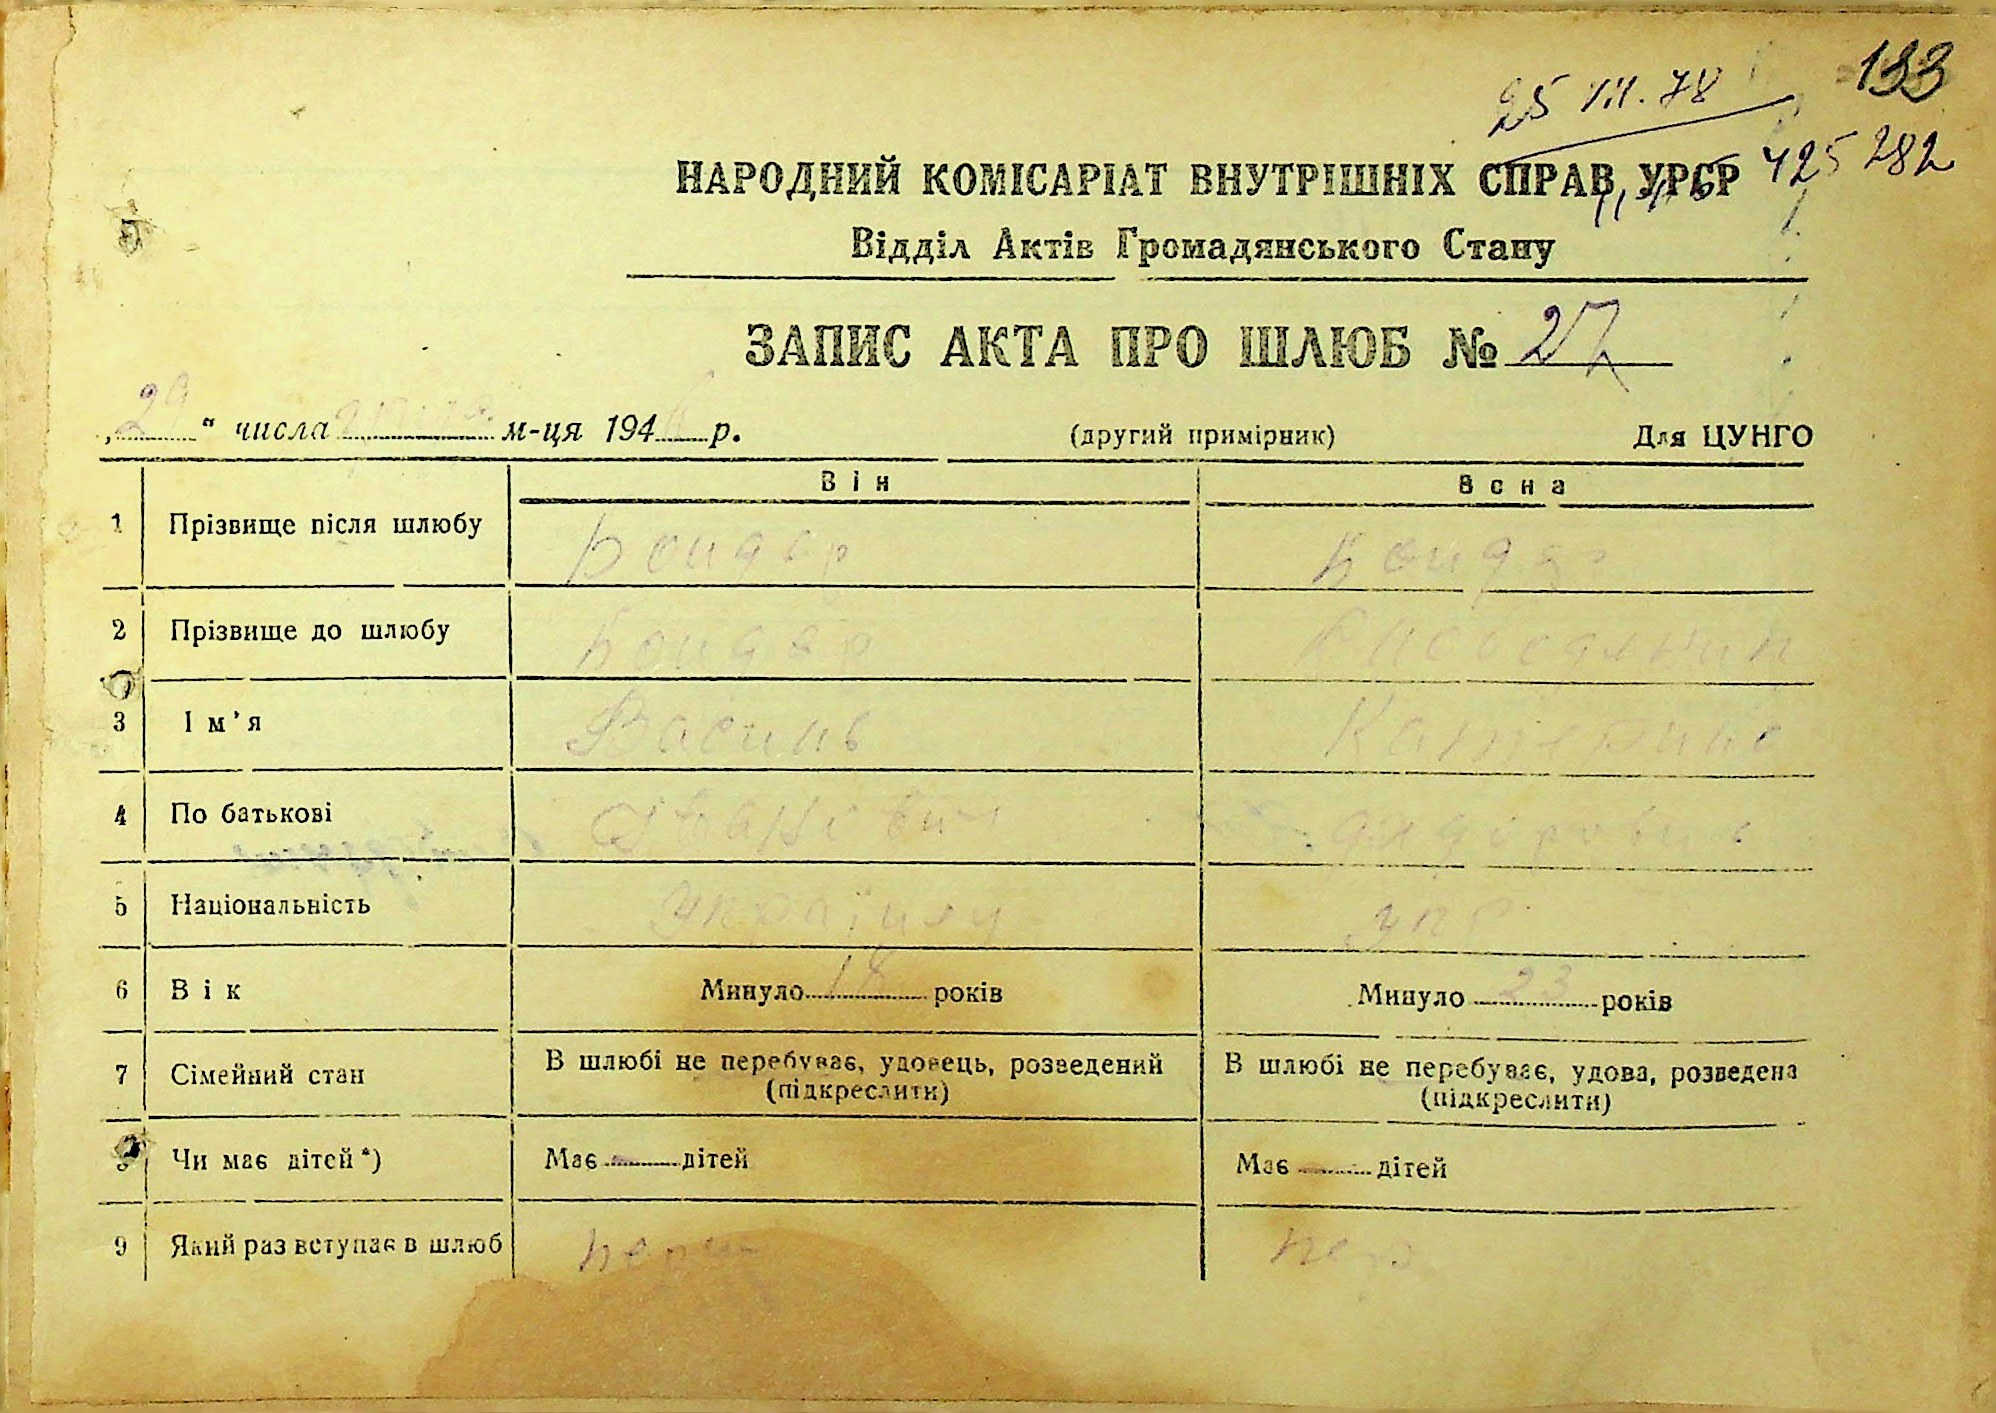 133
25 VII. 78
425 282
НАРОДНИЙ КОМІСАРІАТ ВНУТРІШНІХ СПРАВ УРСР
Відділ Актів Громадянського Стану
ЗАПИС АКТА ПРО ШЛЮБ № 27
„29“ числа м-ця 194 р. (другий примірник) Для ЦУНГО
Він Вона
1 Прізвище після шлюбу Бондар Бондар
2 Прізвище до шлюбу Бондар
3 Ім’я Василь Катерина
4 По батькові Іванович
5 Національність Українец укр
6 Вік Минуло 18 років Минуло 23 років
7 Сімейний стан В шлюбі не перебуває, удовець, розведений (підкреслити) В шлюбі не перебуває, удова, розведена (підкреслити)
8 Чи має дітей*) Має — дітей Має — дітей
9 Який раз вступає в шлюб перш пер